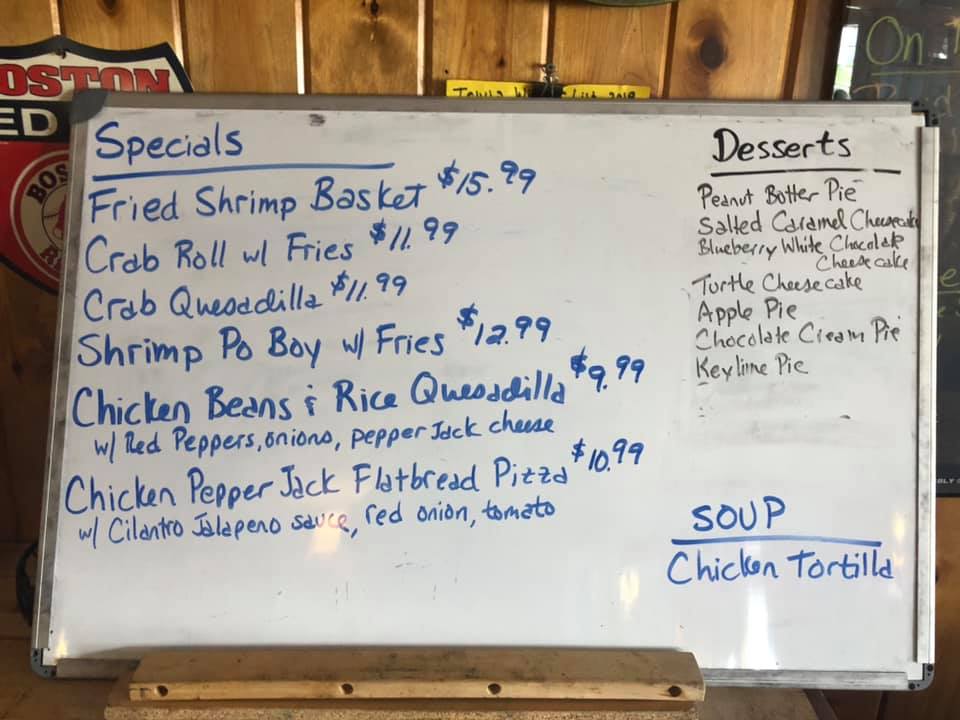 BOSTON
RED
BOS
RE
2018
On
Specials
Fried Shrimp Basket $15.99
Crab Roll w/ Fries $11.99
Crab Quesadilla $11.99
Shrimp Po Boy w/ Fries $12.99
Chicken Beans & Rice Quesadilla $9.99
w/ Red Peppers, onions, pepper Jack cheese
Chicken Pepper Jack Flatbread Pizza $10.99
w/ Cilantro Jalapeno sauce, red onion, tomato
Desserts
Peanut Butter Pie
Salted Caramel Cheesecake
Blueberry White Chocolate
Cheesecake
Turtle Cheesecake
Apple Pie
Chocolate Cream Pie
Keylime Pie
SOUP
Chicken Tortilla